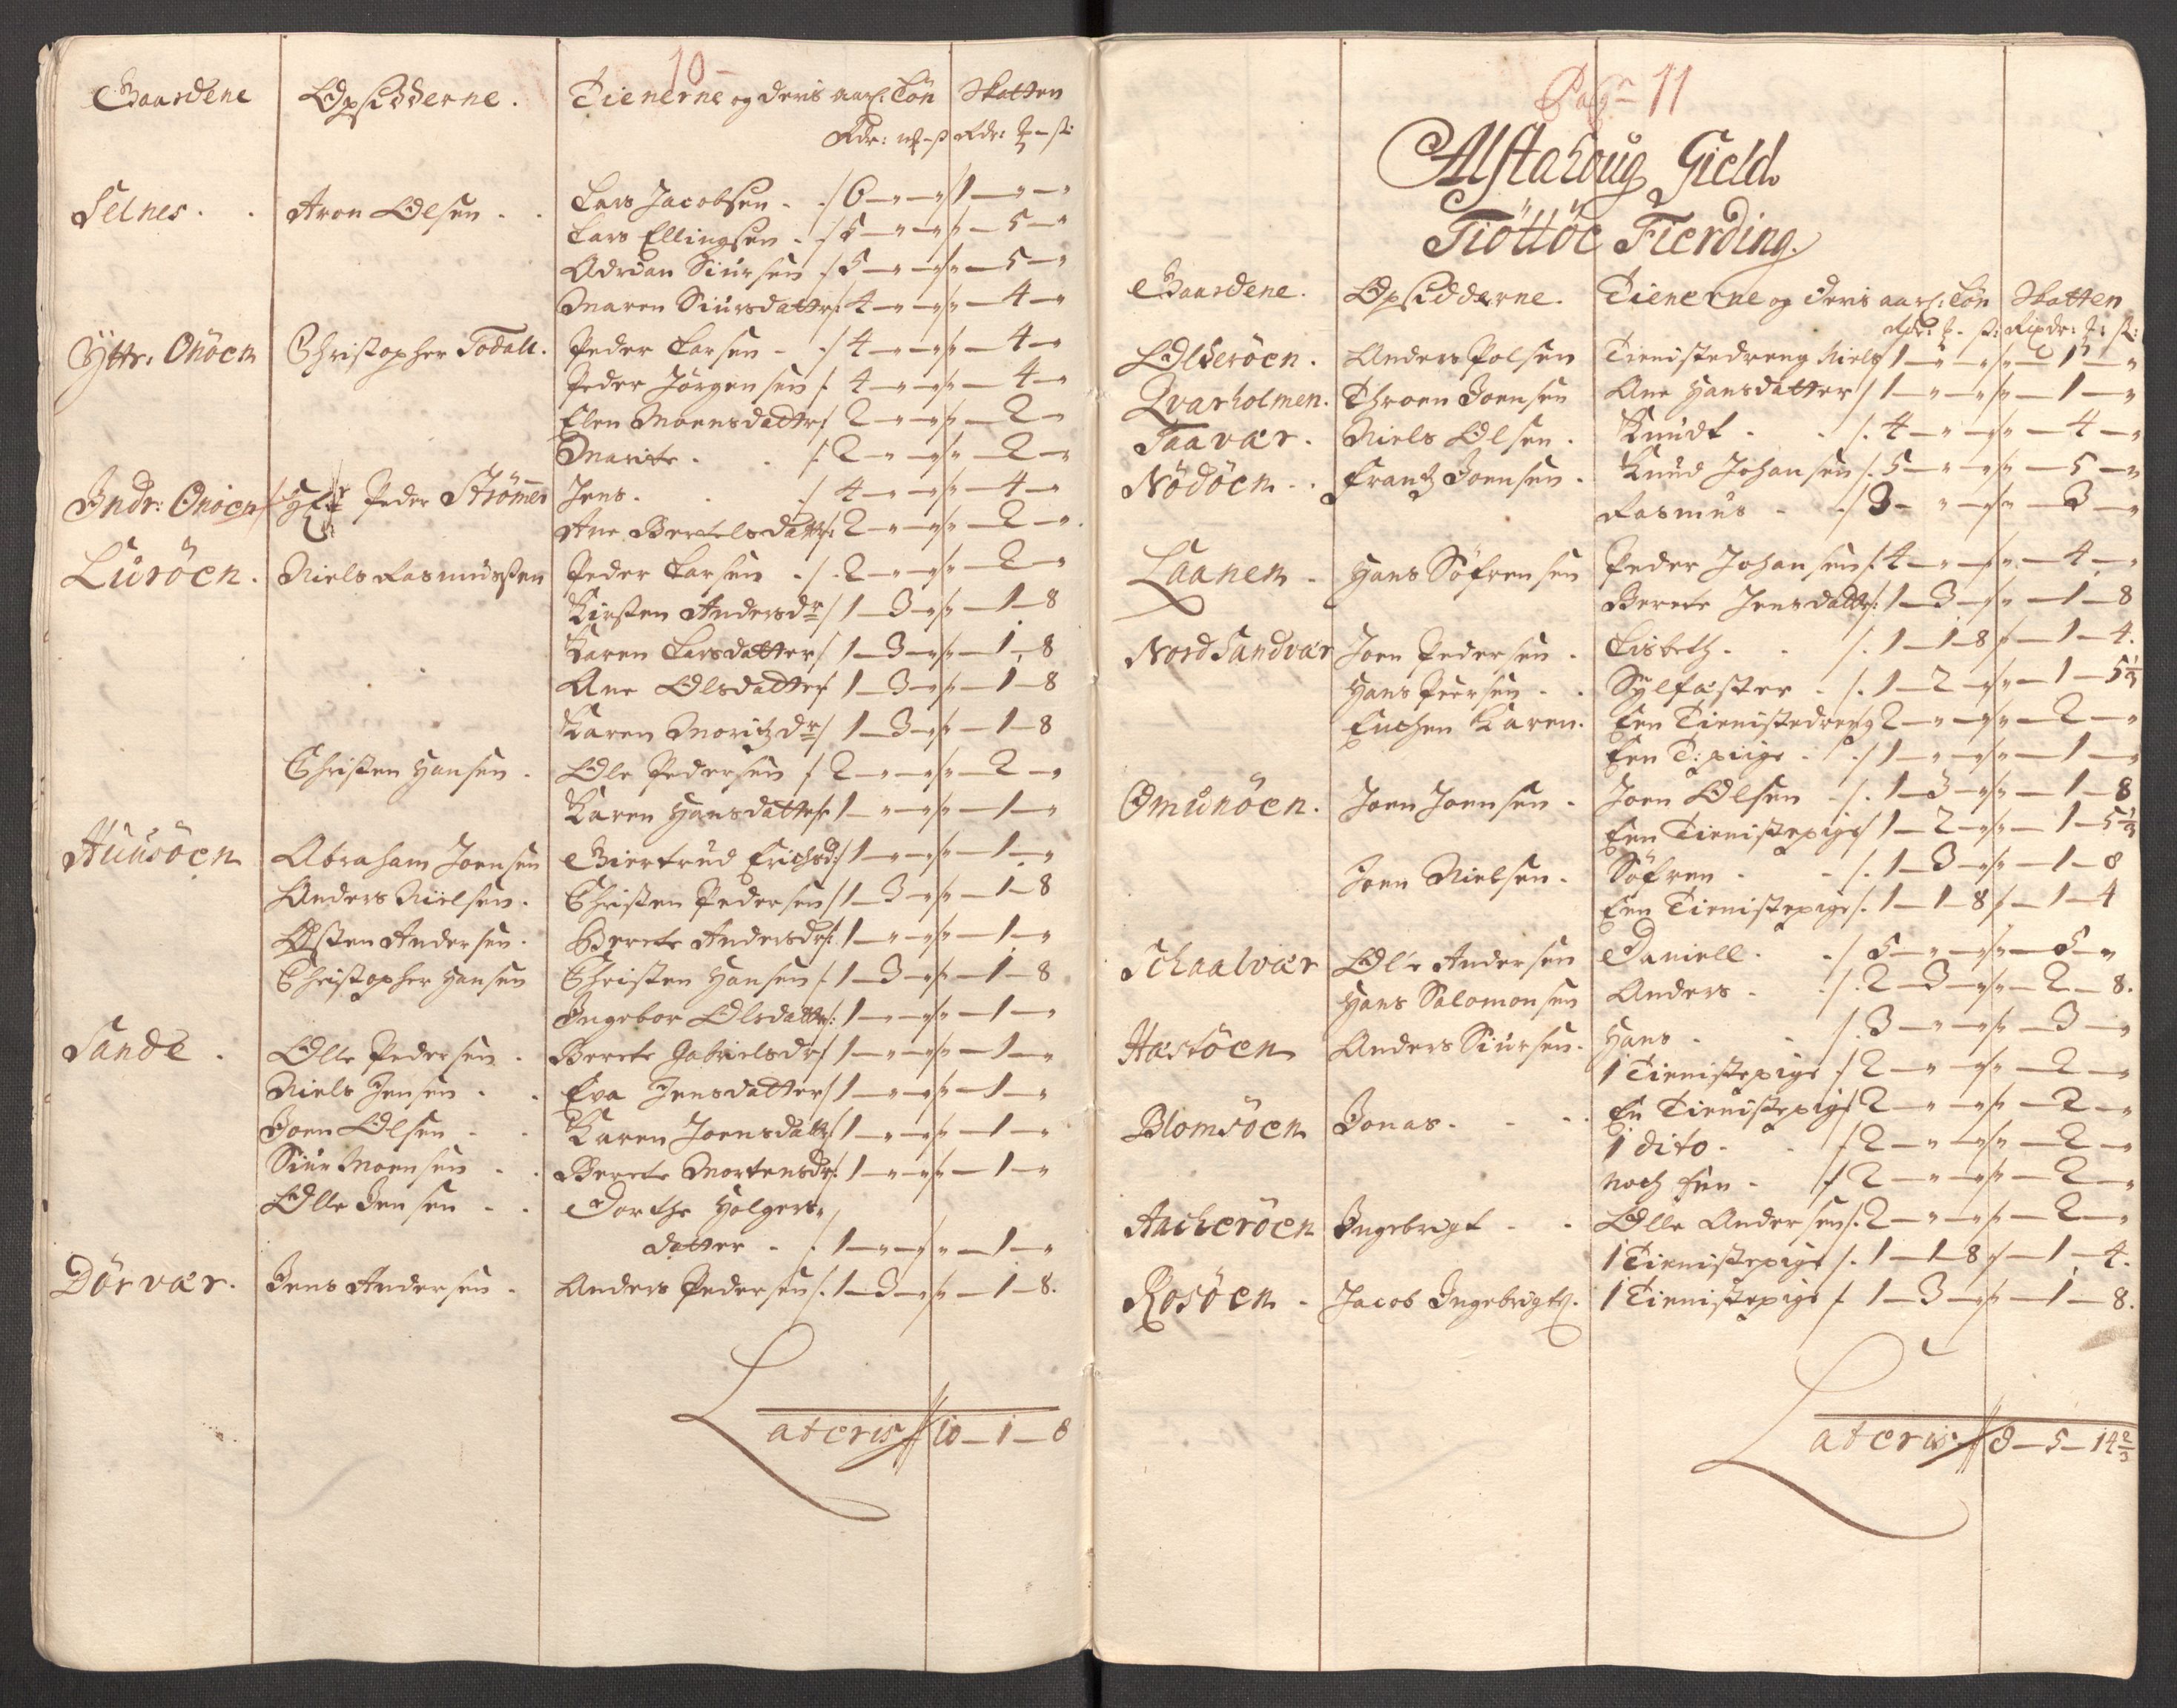 10-
Gaardene Opsidderne. Tienerne og deris aarl: Løn Skatten
Rdr: mk-s Rdr: mk-s:
Selnes. . Aron Olsen . . Lars Jacobsen - ./ 6 — " — " / 1 — " — "
Lars Ellingsen . / 5 — " — " / " — 5 — "
Adrian Siursen / 5 — " — " / " — 5 — "
Maren Siursdattr / 4 — " — " / " — 4 — "
Yttr: Onöen Christopher Todall. Peder Larsen - / 4 — " — " / " — 4 — "
Peder Jörgensen / 4 — " — " / " — 4 — "
Elen Moensdattr / 2 — " — " / " — 2 — "
Marite . . / 2 — " — " / " — 2 — "
Indr: Onöen Hr Peder Strömer Jens. . / 4 — " — " / " — 4 — "
Ane Bertelsdattr / 2 — " — " / " — 2 — ".
Luröen. Niels Rasmussen Peder Larsen . / 2 — " — " / " — 2 — "
Kirsten Andersdr / 1 — 3 — " / " — 1 — 8
Karen Larsdatter / 1 — 3 — " / " — 1 — 8
Ane Olsdatter 1 — 3 — " / " — 1 — 8
Karen Moritzdr / 1 — 3 — " / " — 1 — 8
Christen Hansen . Ole Pedersen / 2 — " — " / " — 2 — "
Karen Hansdatter 1 — " — " / " — 1 — "
Huusöen Abraham Joensen Giertrud Erichsd: / 1 — " — " / " — 1 — "
Anders Nielsen. Christen Pedersen / 1 — 3 — " / " — 1 — 8
Østen Andersen. Berete Andersdr / 1 — " — " / " — 1 — "
Christopher Hansen Christen Hansen / 1 — 3 — " / " — 1 — 8
Ingebor Olsdattr: 1 — " — " / " — 1 — "
Sande . Olle Pedersen . Berete Gabrielsdr / 1 — " — " / " — 1 — "
Niels Jensen . . Eva Jensdatter / 1 — " — " / " — 1 — "
Joen Olsen - . Karen Joensdattr / 1 — " — " / " — 1 — "
Siur Moensen . . Berete Mortensdr / 1 — " — " / " — 1 — "
Olle Jensen . . Dorthe Holgers,
datter . . 1 — " — " / " — 1 — "
Dörvær. Jens Andersen . Anders Pedersen / 1 — 3 — " / " — 1 — 8.
Lateris // 10 — 1 — 8
Pagn 11
Alstahoug Gield.
Tiöttöe Fierding.
Gaardene. Opsidderne. Tienerne og deris aarl: Løn Skatten
Rdr: mk- s: Rixdr: mk: s:
Olderöen. Anders Polsen Tienistedreng Niels 1 — " — " / " — 1 — "
Qvarholmen. Throen Joensen Ane Hansdatter / 1 — " — " / " — 1 — "
Taavær. Niels Olsen . Knudt . . / 4 — " — " / " — 4 — "
Nödöen . . Frantz Joensen . Knud Johansen / 5 — " — " / " — 5 — "
Rasmus - . / 3 — " — " / " — 3 — "
Laanen . Hans Söfrensen Peder Johansen / 4 — " — " / " — 4 — "
Berete Jensdattr: 1 — 3 — " / " — 1 — 8
Nord Sandvær Joen Pedersen . Lisbeth. . / . 1 — 1 — 8 / " — 1 — 4.
Hans Peersen . . Sylfaster . / . 1 — 2 — " / " — 1 — 5 1/3
Enchen Karen. Een Tienistedreng 2 — " — " / " — 2 — "
Een T: piige . / 1 — " — " / " — 1 — "
Omunöen. Joen Joensen . Joen Olsen . / . 1 — 3 — " / " — 1 — 8
Een Tienistepige / 1 — 2 — " / " — 1 — 5 1/3
Joen Nielsen . Söfren . . / . 1 — 3 — " / " — 1 — 8
Een Tienistepige / . 1 — 1 — 8 / " — 1 — 4
Schaalvær Ole Andersen Daniell. . / 5 — " — " / " — 5 — "
Hans Salomonsen Anders . . / . 2 — 3 — " / " — 2 — 8.
Hastöen Anders Siursen. Hans . . / . 3 — " — " / " — 3 — "
1 Tienistepige / 2 — " — " / " — 2 — "
Blomsöen Jonas . . . En Tienistepige 2 — " — " / " — 2 — "
1 dito . . / 2 — " — " / " — 2 — "
noch Een . / 2 — " — " / " — 2 — "
Aacheröen Ingebrigt . . Olle Andersen / . 2 — " — " / " — 2 — "
1 Tienistepige / . 1 — 1 — 8 / " — 1 — 4.
Rosöen . Jacob Ingebrigts. 1 Tienistepige / 1 — 3 — " / " — 1 — 8.
Lateris // 8 — 5 — 14 2/3